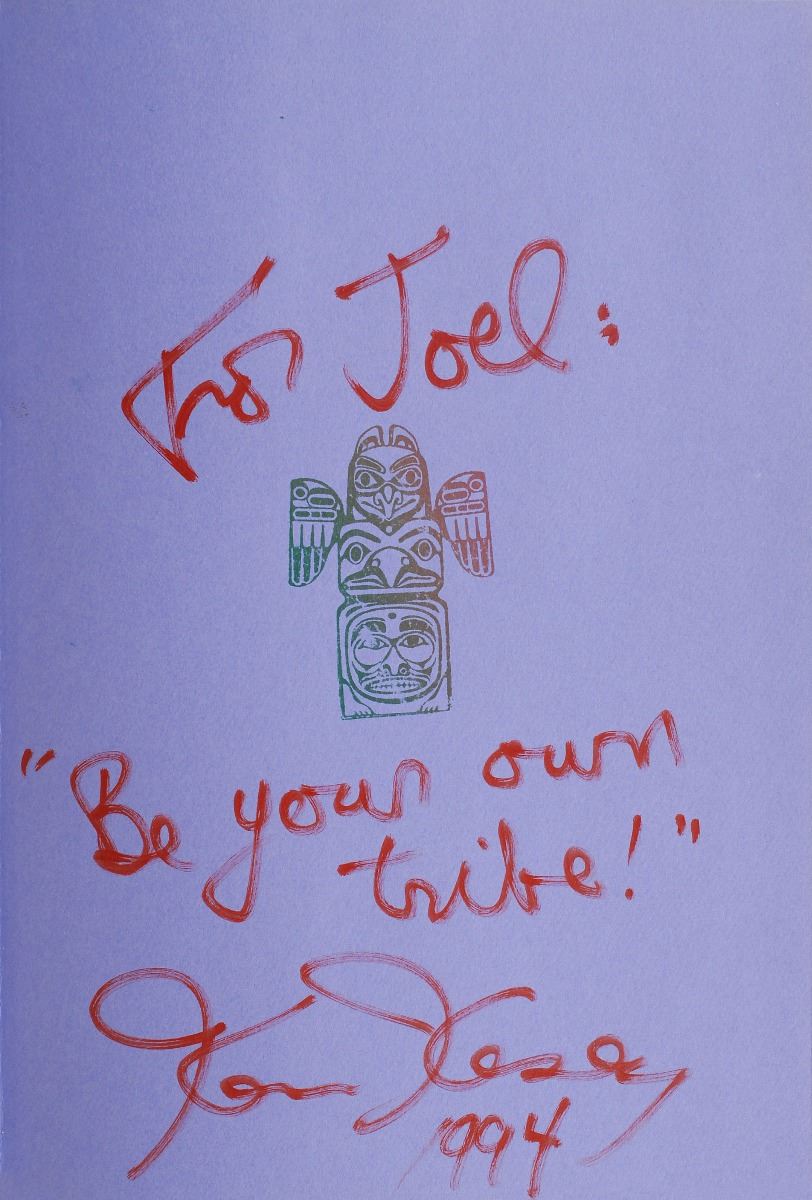 For Joel:
"Be your own
tribe!"
Ken Kesey
1994